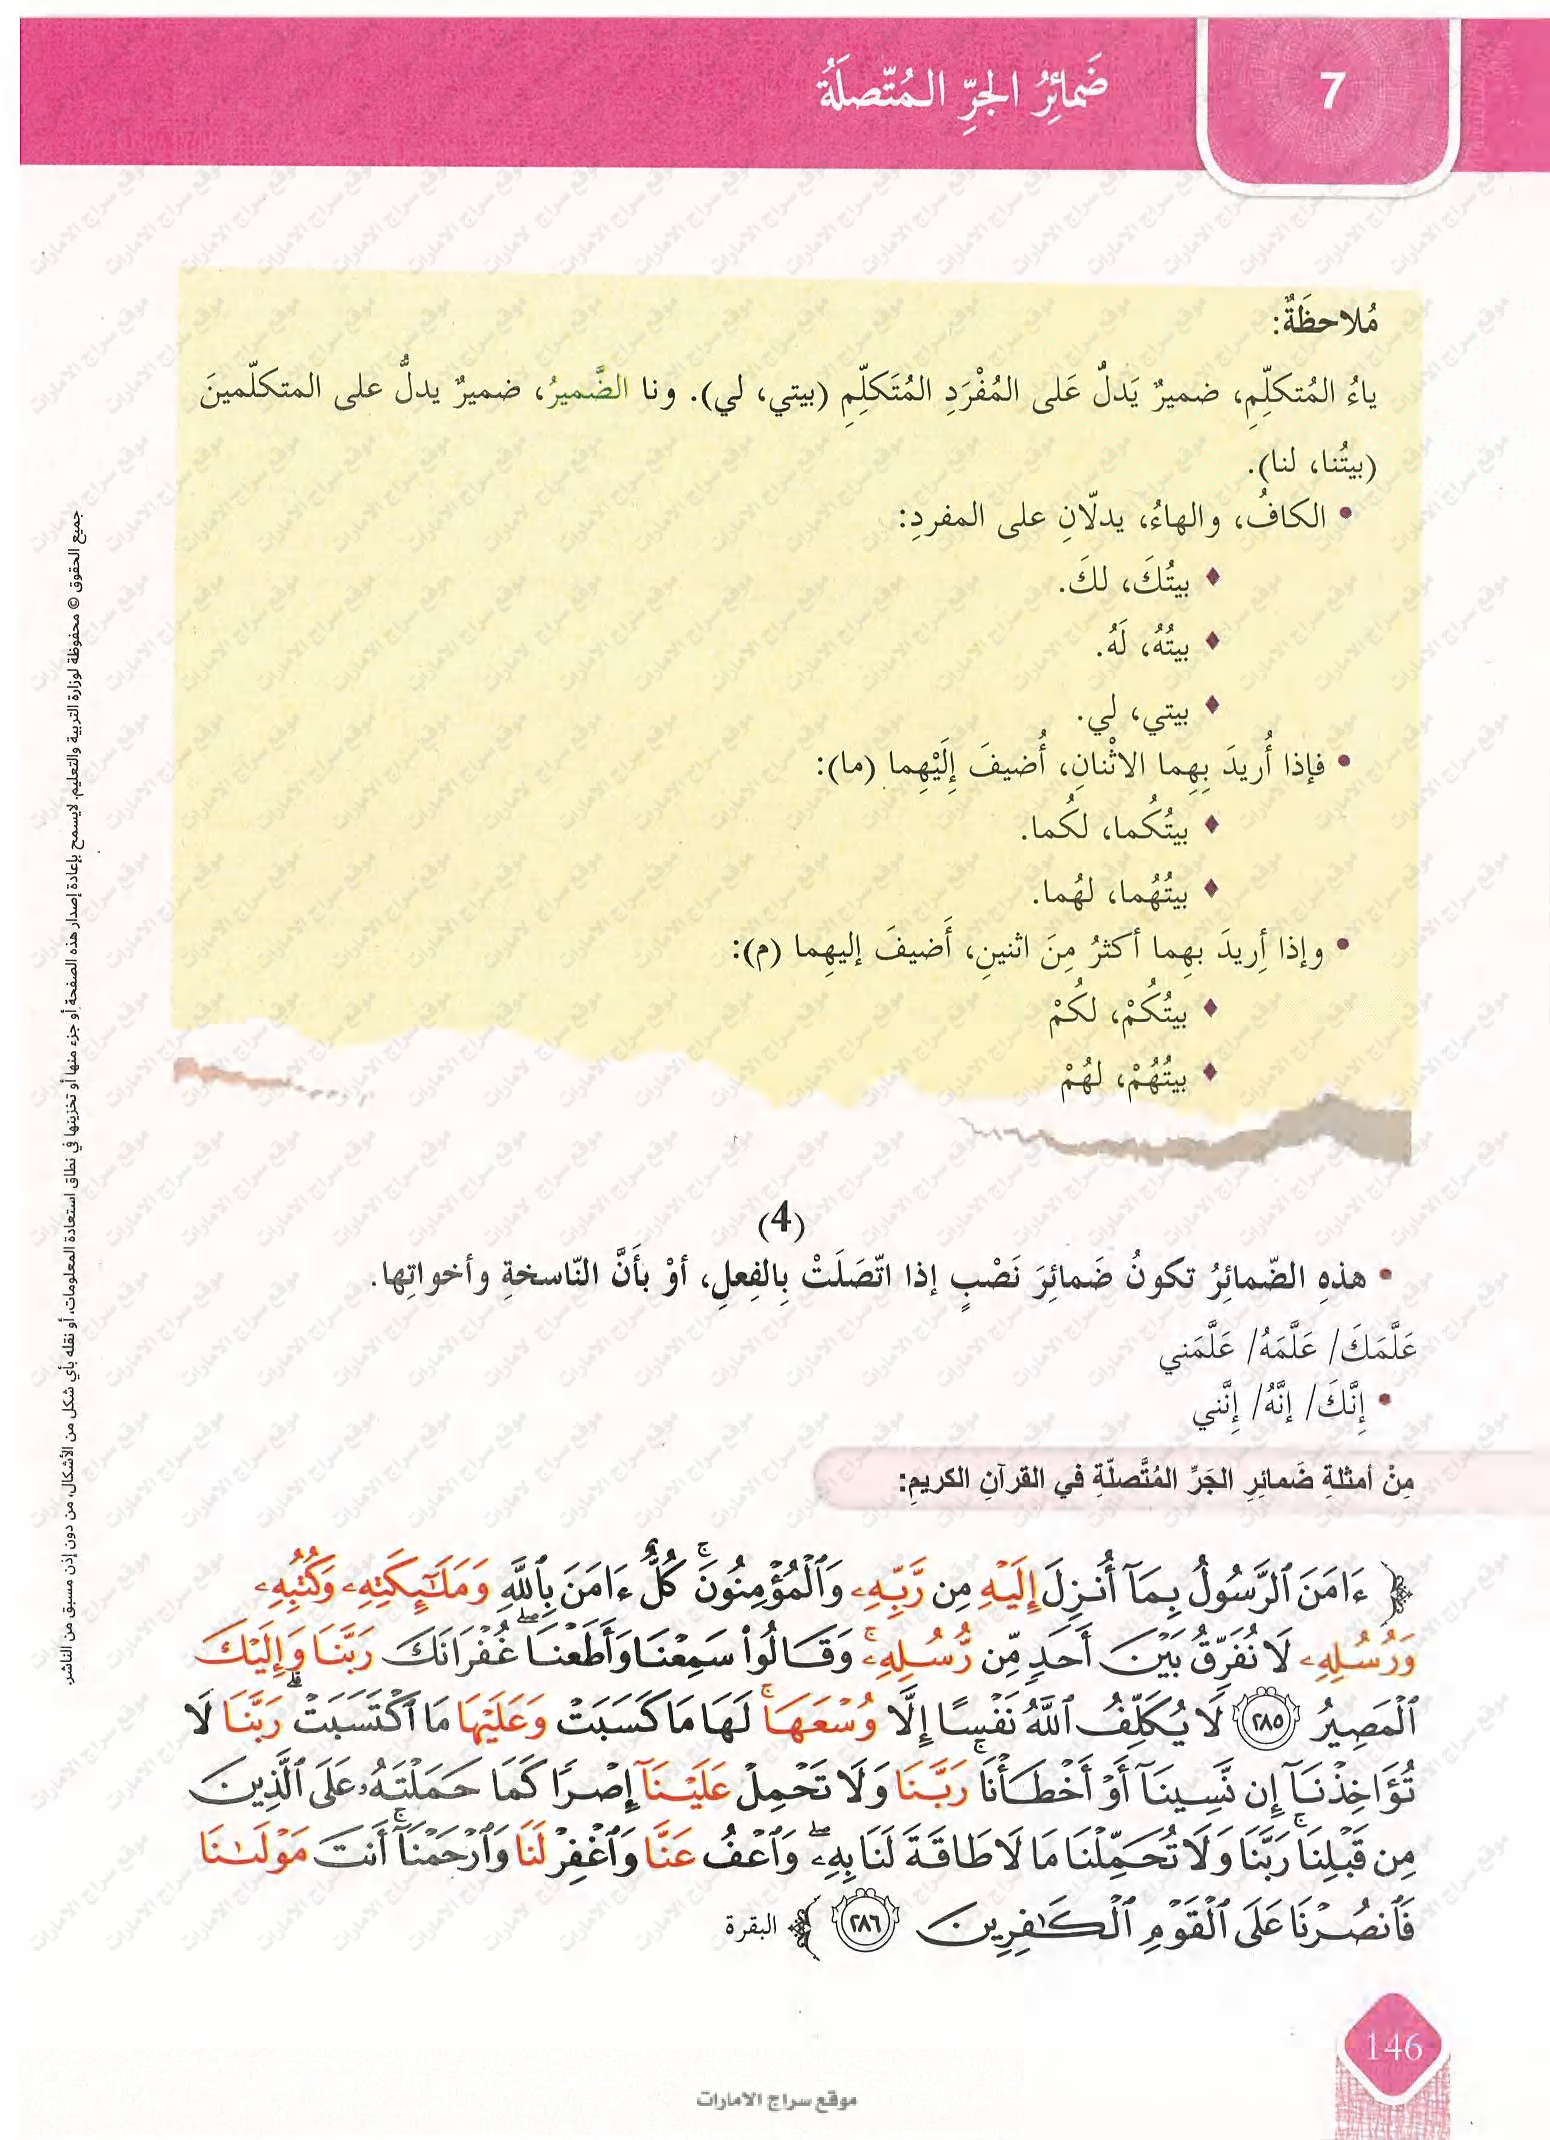 7
ضَمائِرُ الجرِّ المُتّصلَةُ
مُلاحظَةٌ:
ياءُ المُتكلِّمِ، ضميرٌ يَدلُّ عَلى المُفْرَدِ المُتَكلِّمِ (بيتي، لي). ونا الضَّميرُ، ضميرٌ يدلُّ على المتكلّمينَ
(بيتُنا، لنا).
• الكافُ، والهاءُ، يدلّانِ على المفردِ:
♦ بيتُكَ، لكَ.
♦ بيتُهُ، لَهُ.
♦ بيتي، لي.
• فإذا أُريدَ بِهِما الاثْنانِ، أُضيفَ إِلَيْهِما (ما):
♦ بيتُكُما، لكُما.
♦ بيتُهُما، لهُما.
• وإذا أِريدَ بهِما أكثرُ مِنَ اثنينِ، أَضيفَ إليهِما (م):
♦ بيتُكُمْ، لكُمْ
♦ بيتُهُمْ، لهُمْ
(4)
• هذهِ الضّمائِرُ تكونُ ضَمائِرَ نَصْبٍ إذا اتّصَلَتْ بِالفِعلِ، أوْ بأَنَّ النّاسخةِ وأخواتِها.
عَلَّمَكَ/ عَلَّمَهُ/ عَلَّمَني
• إِنَّكَ/ إنَّهُ/ إِنَّني
مِنْ أمثلةِ ضَمائِرِ الجَرِّ المُتَّصلّةِ في القرآنِ الكريمِ:
﴿ ءَامَنَ ٱلرَّسُولُ بِمَآ أُنزِلَ إِلَيْهِ مِن رَّبِّهِۦ وَٱلْمُؤْمِنُونَ ۚ كُلٌّ ءَامَنَ بِٱللَّهِ وَمَلَٰٓئِكَتِهِۦ وَكُتُبِهِۦ
وَرُسُلِهِۦ لَا نُفَرِّقُ بَيْنَ أَحَدٍ مِّن رُّسُلِهِۦ ۚ وَقَالُوا۟ سَمِعْنَا وَأَطَعْنَا ۖ غُفْرَانَكَ رَبَّنَا وَإِلَيْكَ
ٱلْمَصِيرُ ٢٨٥ لَا يُكَلِّفُ ٱللَّهُ نَفْسًا إِلَّا وُسْعَهَا ۚ لَهَا مَا كَسَبَتْ وَعَلَيْهَا مَا ٱكْتَسَبَتْ ۗ رَبَّنَا لَا
تُؤَاخِذْنَآ إِن نَّسِينَآ أَوْ أَخْطَأْنَا ۚ رَبَّنَا وَلَا تَحْمِلْ عَلَيْنَآ إِصْرًا كَمَا حَمَلْتَهُۥ عَلَى ٱلَّذِينَ
مِن قَبْلِنَا ۚ رَبَّنَا وَلَا تُحَمِّلْنَا مَا لَا طَاقَةَ لَنَا بِهِۦ ۖ وَٱعْفُ عَنَّا وَٱغْفِرْ لَنَا وَٱرْحَمْنَآ ۚ أَنتَ مَوْلَىٰنَا
فَٱنصُرْنَا عَلَى ٱلْقَوْمِ ٱلْكَٰفِرِينَ ٢٨٦ ﴾ البقرة
جميع الحقوق © محفوظة لوزارة التربية والتعليم. لايسمح بإعادة إصدار هذه الصفحة أو جزء منها أو تخزينها في نطاق استعادة المعلومات، أو نقله بأي شكل من الأشكال، من دون إذن مسبق من الناشر
146
موقع سراج الامارات